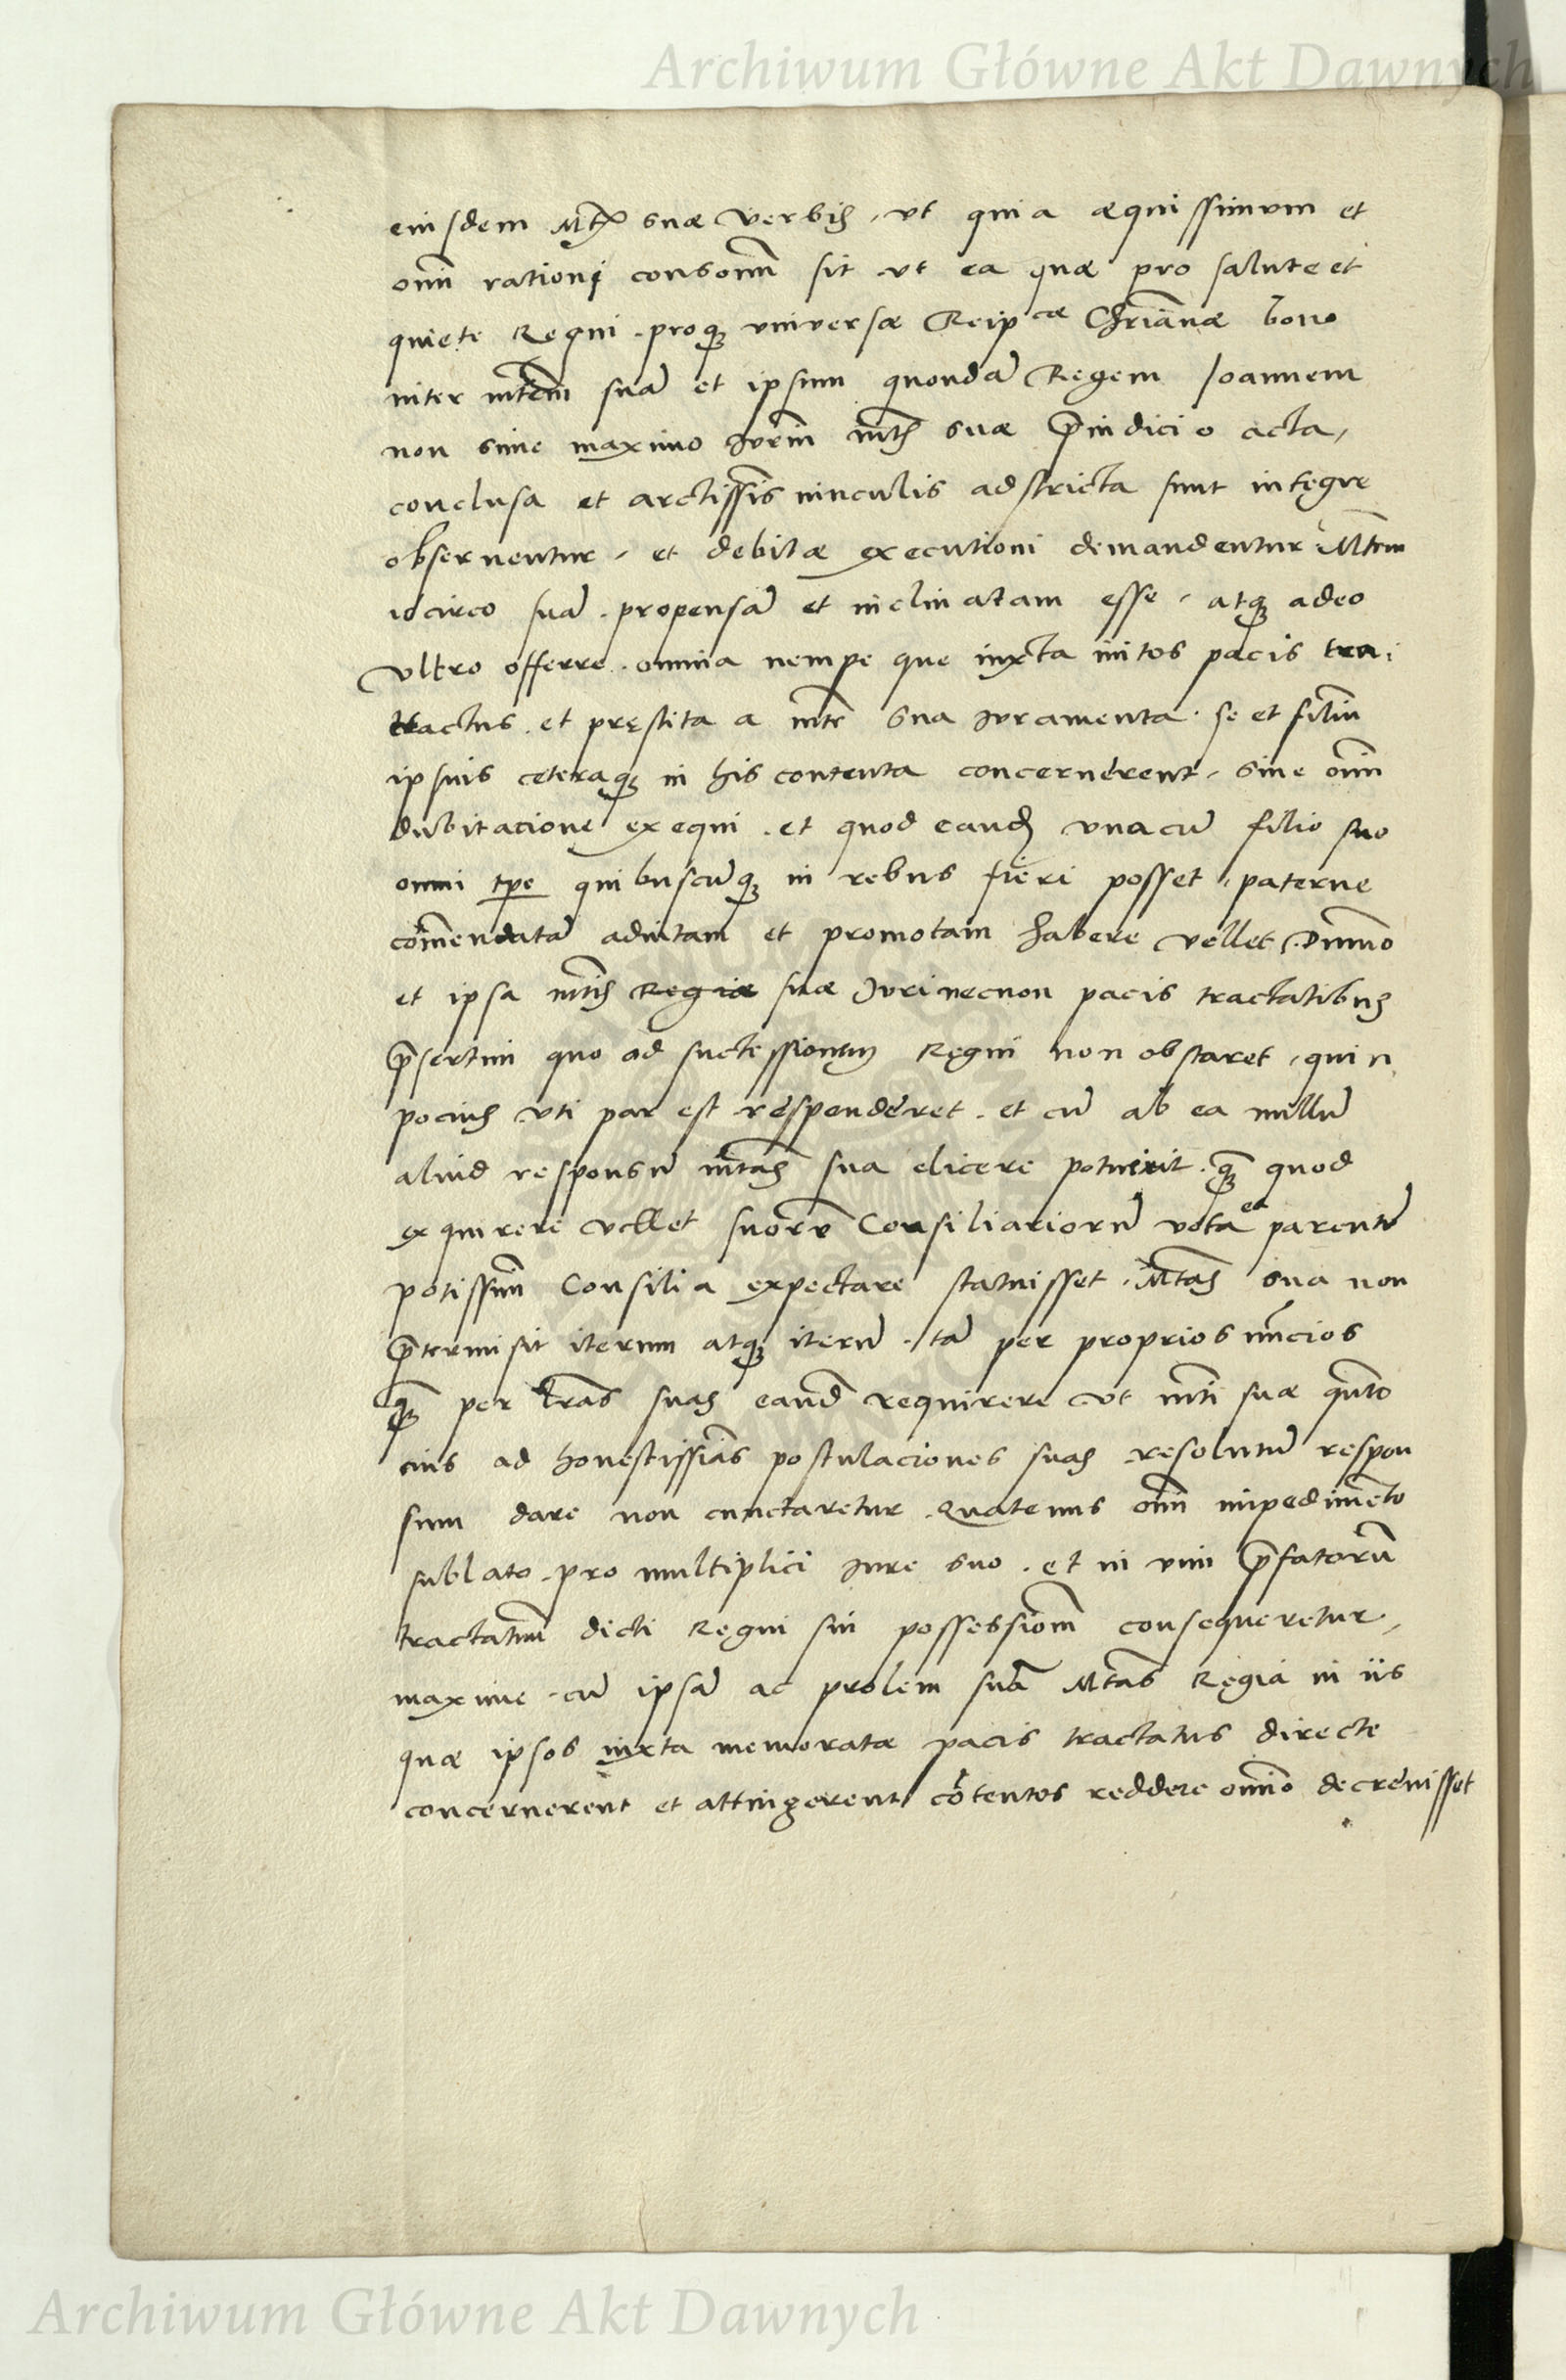 Archiwum Główne Akt Dawnych
eiusdem Mtis suæ verbis, vt quia æquissimum et
om̃i rationi consonũ sit vt ea quæ pro salute et
quiete Regni proq3 vniversæ Reipcæ Chr̃ianæ bono
inter mtem̃ suã et ipsum quondã Regem Joannem
non sine maximo jurĩu mtis suæ p̃iudicio acta,
conclusa et arctissĩs uinculis adstricta sunt integre
obseruentur, et debitæ executioni demandentur Mtem
idcirco suã propensã et inclinatam esse, atq3 adeo
vltro offerre omnia nempe que iuxta initos pacis tra
tractus et pręstita a mte sua juramenta se et filiũ
ipsius ceteraq3 in his contenta concernerent, sine om̃i
dubitacione exequi et quod eandẽ vnacũ filio suo
omni tpe quibuscũq3 in rebus fieri posset, paterne
com̃endatã adiutam et promotam habere vellet, Dummo
et ipsa mtis Regiæ suæ Juri necnon pacis tractatibus
p̃sertim quo ad successionem Regni non obstaret, quin
pocius vti par est responderet et cũ ab ea nullũ
aliud responsũ mtas sua elicere potuerit q̃3 quod
exquirere vellet suorũ Consiliariorũ vota ea parentũ
potissimũ Consilia expectare statuisset, Mtas sua non
p̃termisit iterum atq3 iterũ, tã per proprios nũcios
q̃3 per lr̃as suas eand̃ requirere vt mti suæ quãto
cius ad honestissiãs postulaciones suas resolutũ respon
sum dare non cunctaretur Quatenus om̃i impedimẽto
sublato pro multiplici jure suo et in vim p̃fatorũ
tractatuũ dicti Regni sui possessionẽ consequeretur,
maxime cũ ipsã ac prolem suã Mtas Regia in iis
quæ ipsos iuxta memoratæ pacis tractatus directe
concernerent et attingerent cõtentos reddere om̃ino decreuisset
Archiwum Główne Akt Dawnych